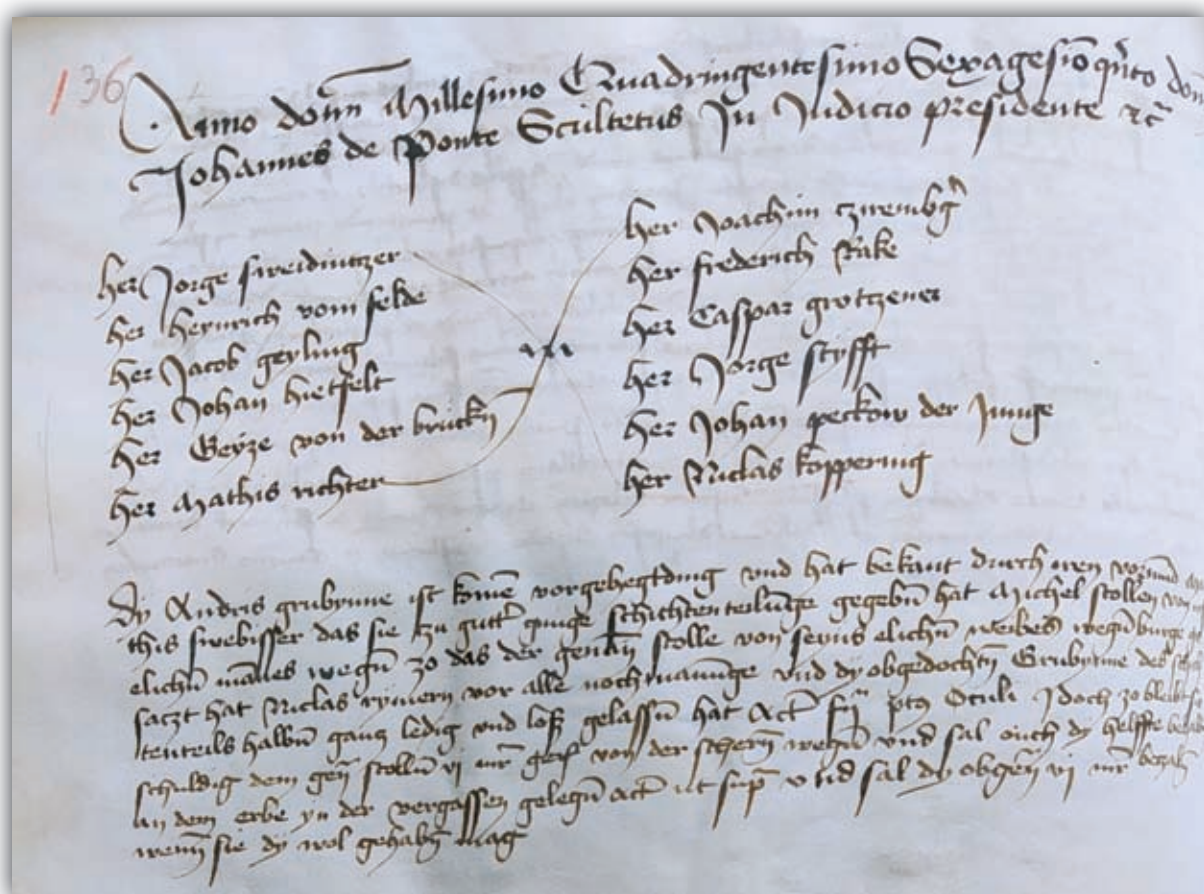 136
Anno dom̄ Millesimo Quadringentesimo Sexagesīo qn̄to
Johannes de Ponte Scultetus In Judicio presidente ꝛc̄
her Jorge sweidnitzer
her heynrich vom felde
her Jacob geyling
her Johan hietfelt
her Geyze von der bruckn̄
her Mathis richter
her Joachim
her frederich Rake
her Caspar grotzener
her Jorge styfft
her Johan peckow der Junge
her Niclas koppering
Dy Andris grubynne ist komē vorgehegt ding vnd hat bekant durch iren vormūd
this swebisser das sie zu gutt' gnuge schichtenteilūge gegebn̄ hat Michel stollen von
elichn̄ mānes wegn̄ zo das der genān stolle von seyns elichn̄ weibes wegn̄
saczt hat Niclas rymern vor alle nochmanūge vnd dy obgedochtn̄ Grubynne des
tenteils halbn̄ gancz ledig vnd loß gelassn̄ hat Act̄ Oculi Idoch zo bleibt
schuldig dem gen̄ stolln̄ vj mr̄ von der wegn̄ vnd sal ouch dy helffte
an dem erbe yn der vergassen gelegn̄ act̄ ut sup̄ vnd sal dy obgen̄ vj mr̄
wenn̄ sie dy wol gehabn̄ mag